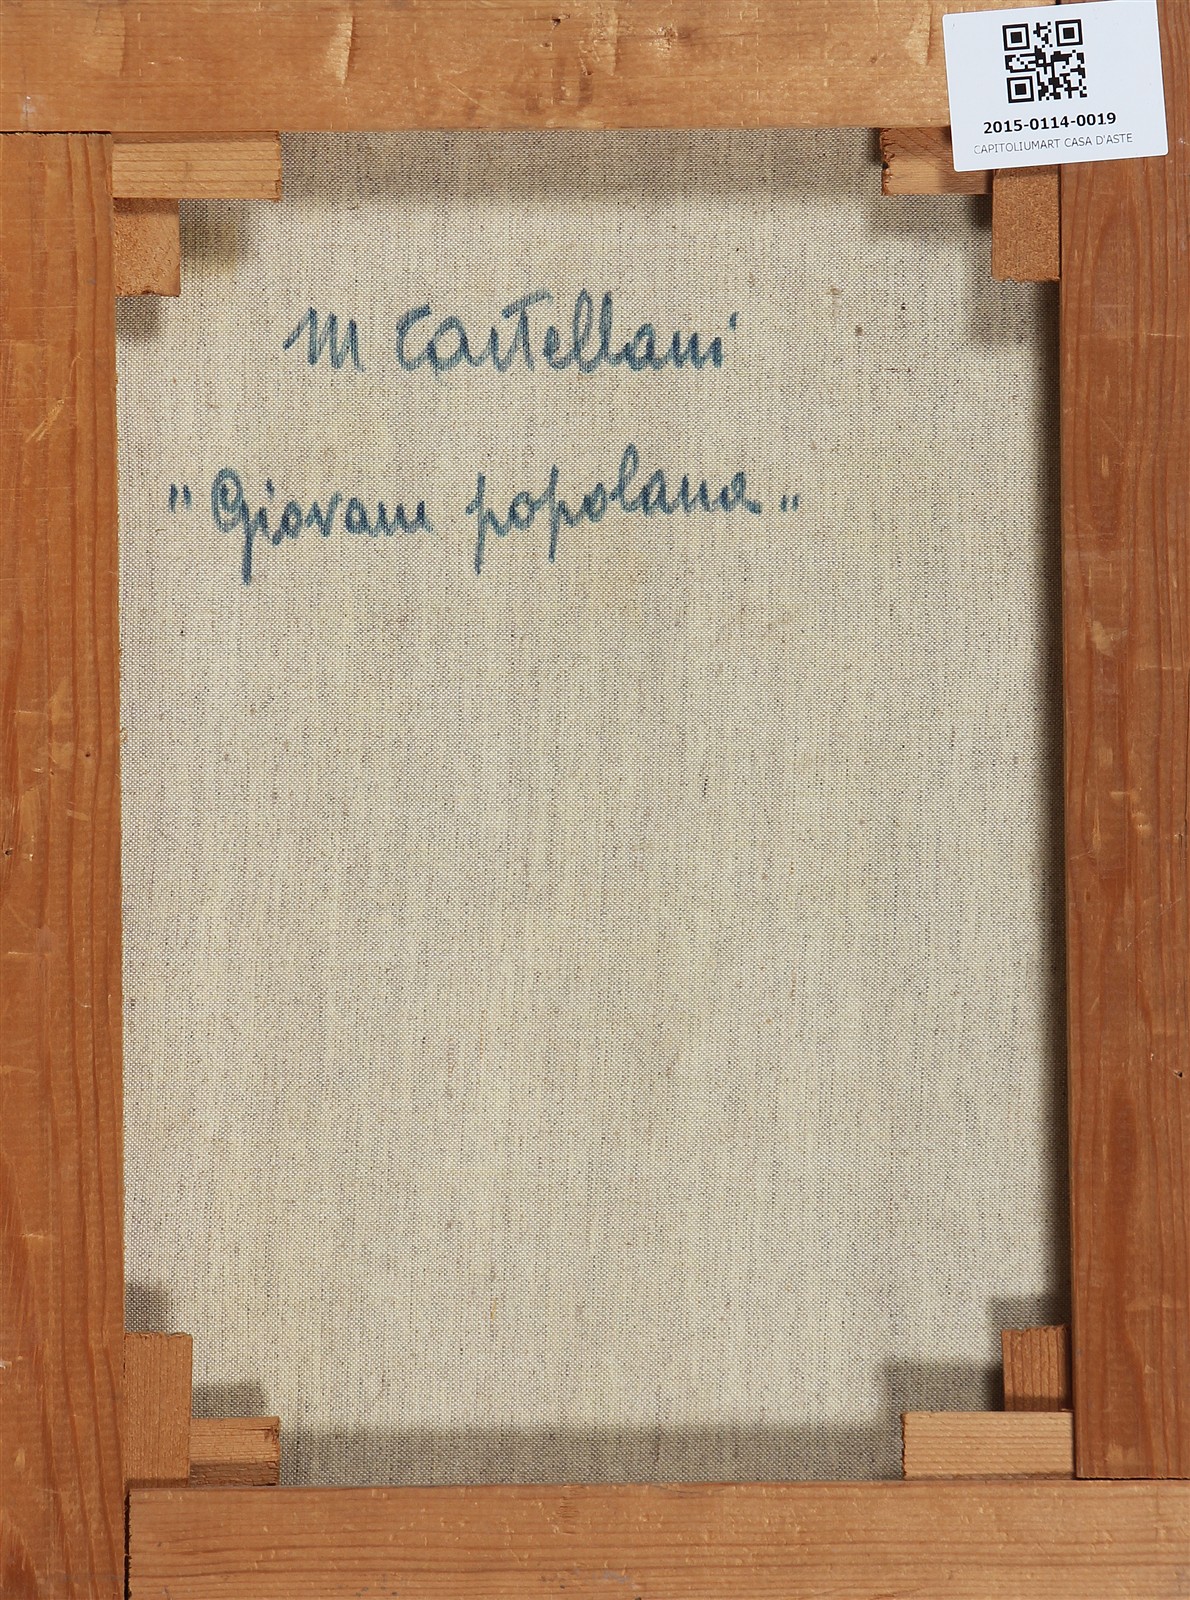 2015-0114-0019
CAPITOLIUMART CASA D'ASTE
M Castellani
"Giovane popolana"